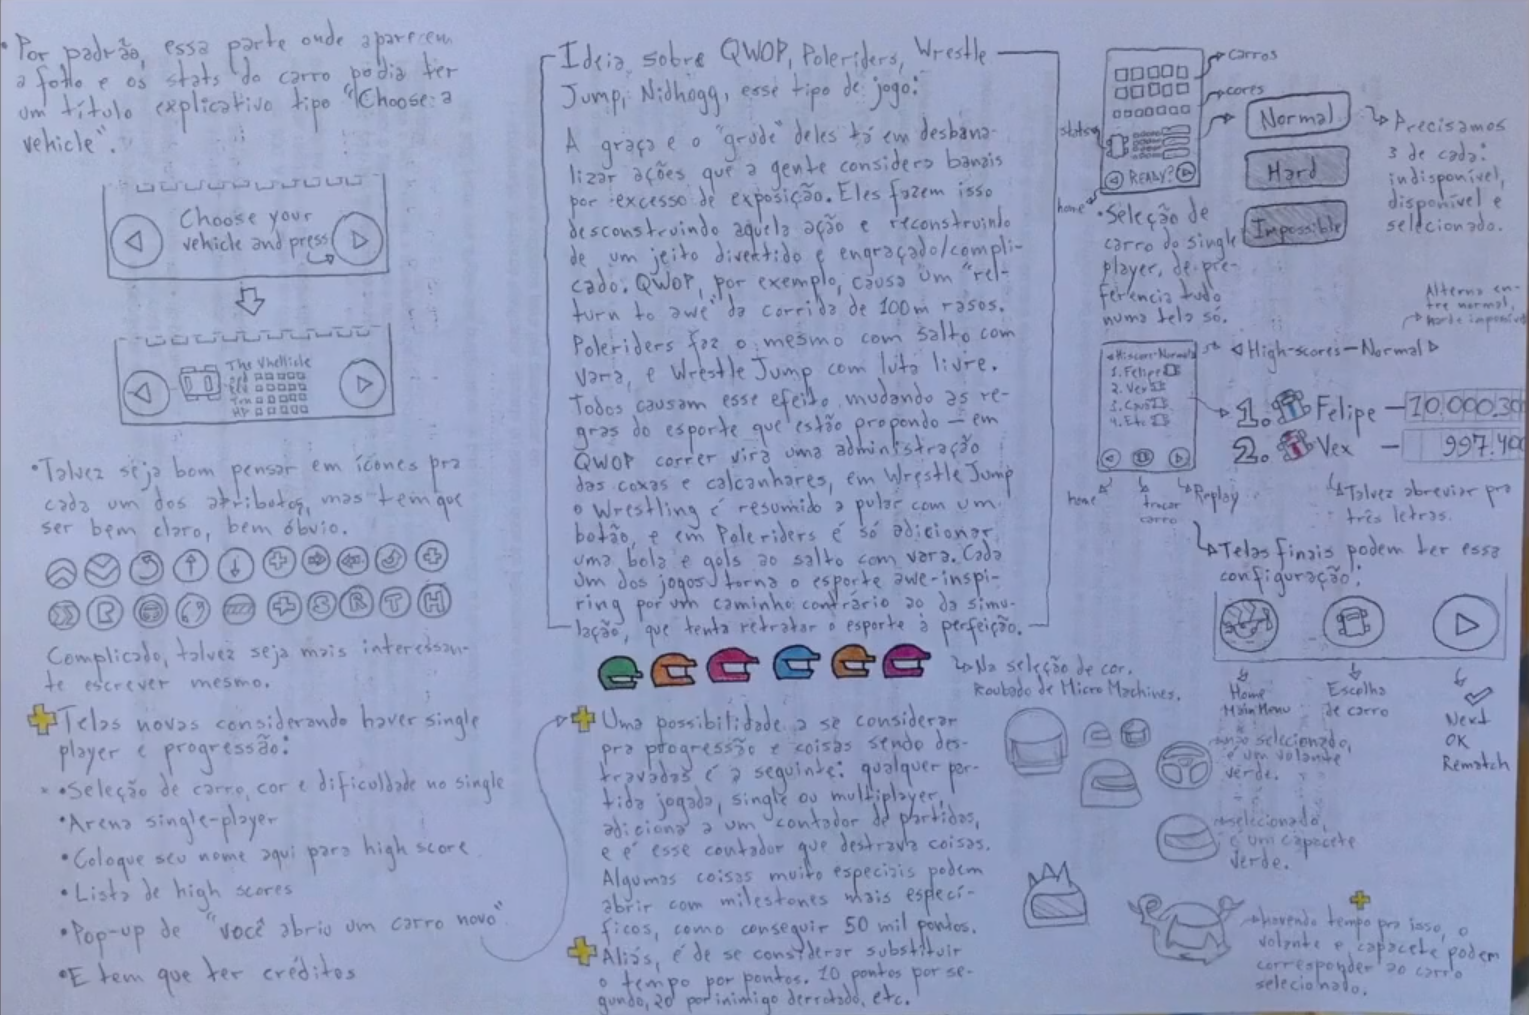 • Por padrão, essa parte onde aparecem
a foto e os stats do carro podia ter
um título explicativo tipo "Choose a
vehicle".
Choose your
vehicle and press
The Vhellicle
HP
• Talvez seja bom pensar em ícones pra
cada um dos atributos, mas tem que
ser bem claro, bem óbvio.
S R T H
Complicado, talvez seja mais interessan-
te escrever mesmo.
Telas novas considerando haver single
player e progressão:
• Seleção de carro, cor e dificuldade no single
• Arena single-player
• Coloque seu nome aqui para high score
• Lista de high scores
• Pop-up de "você abriu um carro novo"
• E tem que ter créditos
Ideia sobre QWOP, Poleriders, Wrestle
Jump, Nidhogg, esse tipo de jogo:
A graça e o "grude" deles tá em desbana-
lizar ações que a gente considera banais
por excesso de exposição. Eles fazem isso
desconstruindo aquela ação e reconstruindo
de um jeito divertido e engraçado/compli-
cado. QWOP, por exemplo, causa um "re-
turn to awe" da corrida de 100m rasos.
Poleriders faz o mesmo com salto com
vara, e Wrestle Jump com luta livre.
Todos causam esse efeito mudando as re-
gras do esporte que estão propondo — em
QWOP correr vira uma administração
das coxas e calcanhares, em Wrestle Jump
o Wrestling é resumido a pular com um
botão, e em Poleriders é só adicionar
uma bola e gols ao salto com vara. Cada
um dos jogos torna o esporte awe-inspi-
ring por um caminho contrário ao da simu-
lação, que tenta retratar o esporte à perfeição.
Na seleção de cor.
Roubado de Micro Machines.
Uma possibilidade a se considerar
pra progressão e coisas sendo des-
travadas é a seguinte: qualquer par-
tida jogada, single ou multiplayer,
adiciona a um contador de partidas,
e é esse contador que destrava coisas.
Algumas coisas muito especiais podem
abrir com milestones mais especí-
ficos, como conseguir 50 mil pontos.
Aliás, é de se considerar substituir
o tempo por pontos. 10 pontos por se-
gundo, 20 por inimigo derrotado, etc.
carros
cores
stats
READY?
home
Normal
Hard
Impossible
Precisamos
3 de cada:
indisponível,
disponível e
selecionado.
• Seleção de
carro do single
player, de pre-
ferência tudo
numa tela só.
Alterna en-
tre normal,
Hiscore-Normal
1. Felipe
2. Vex
4. Etc
High-scores — Normal
1. Felipe —
2. Vex —
home
trocar
carro
Replay
Talvez abreviar pra
três letras.
Telas finais podem ter essa
configuração:
Home
Main Menu
Escolha
de carro
Next
OK
Rematch
não selecionado,
é um volante
verde.
selecionado,
é um capacete
verde.
havendo tempo pra isso, o
volante e capacete podem
corresponder ao carro
selecionado.